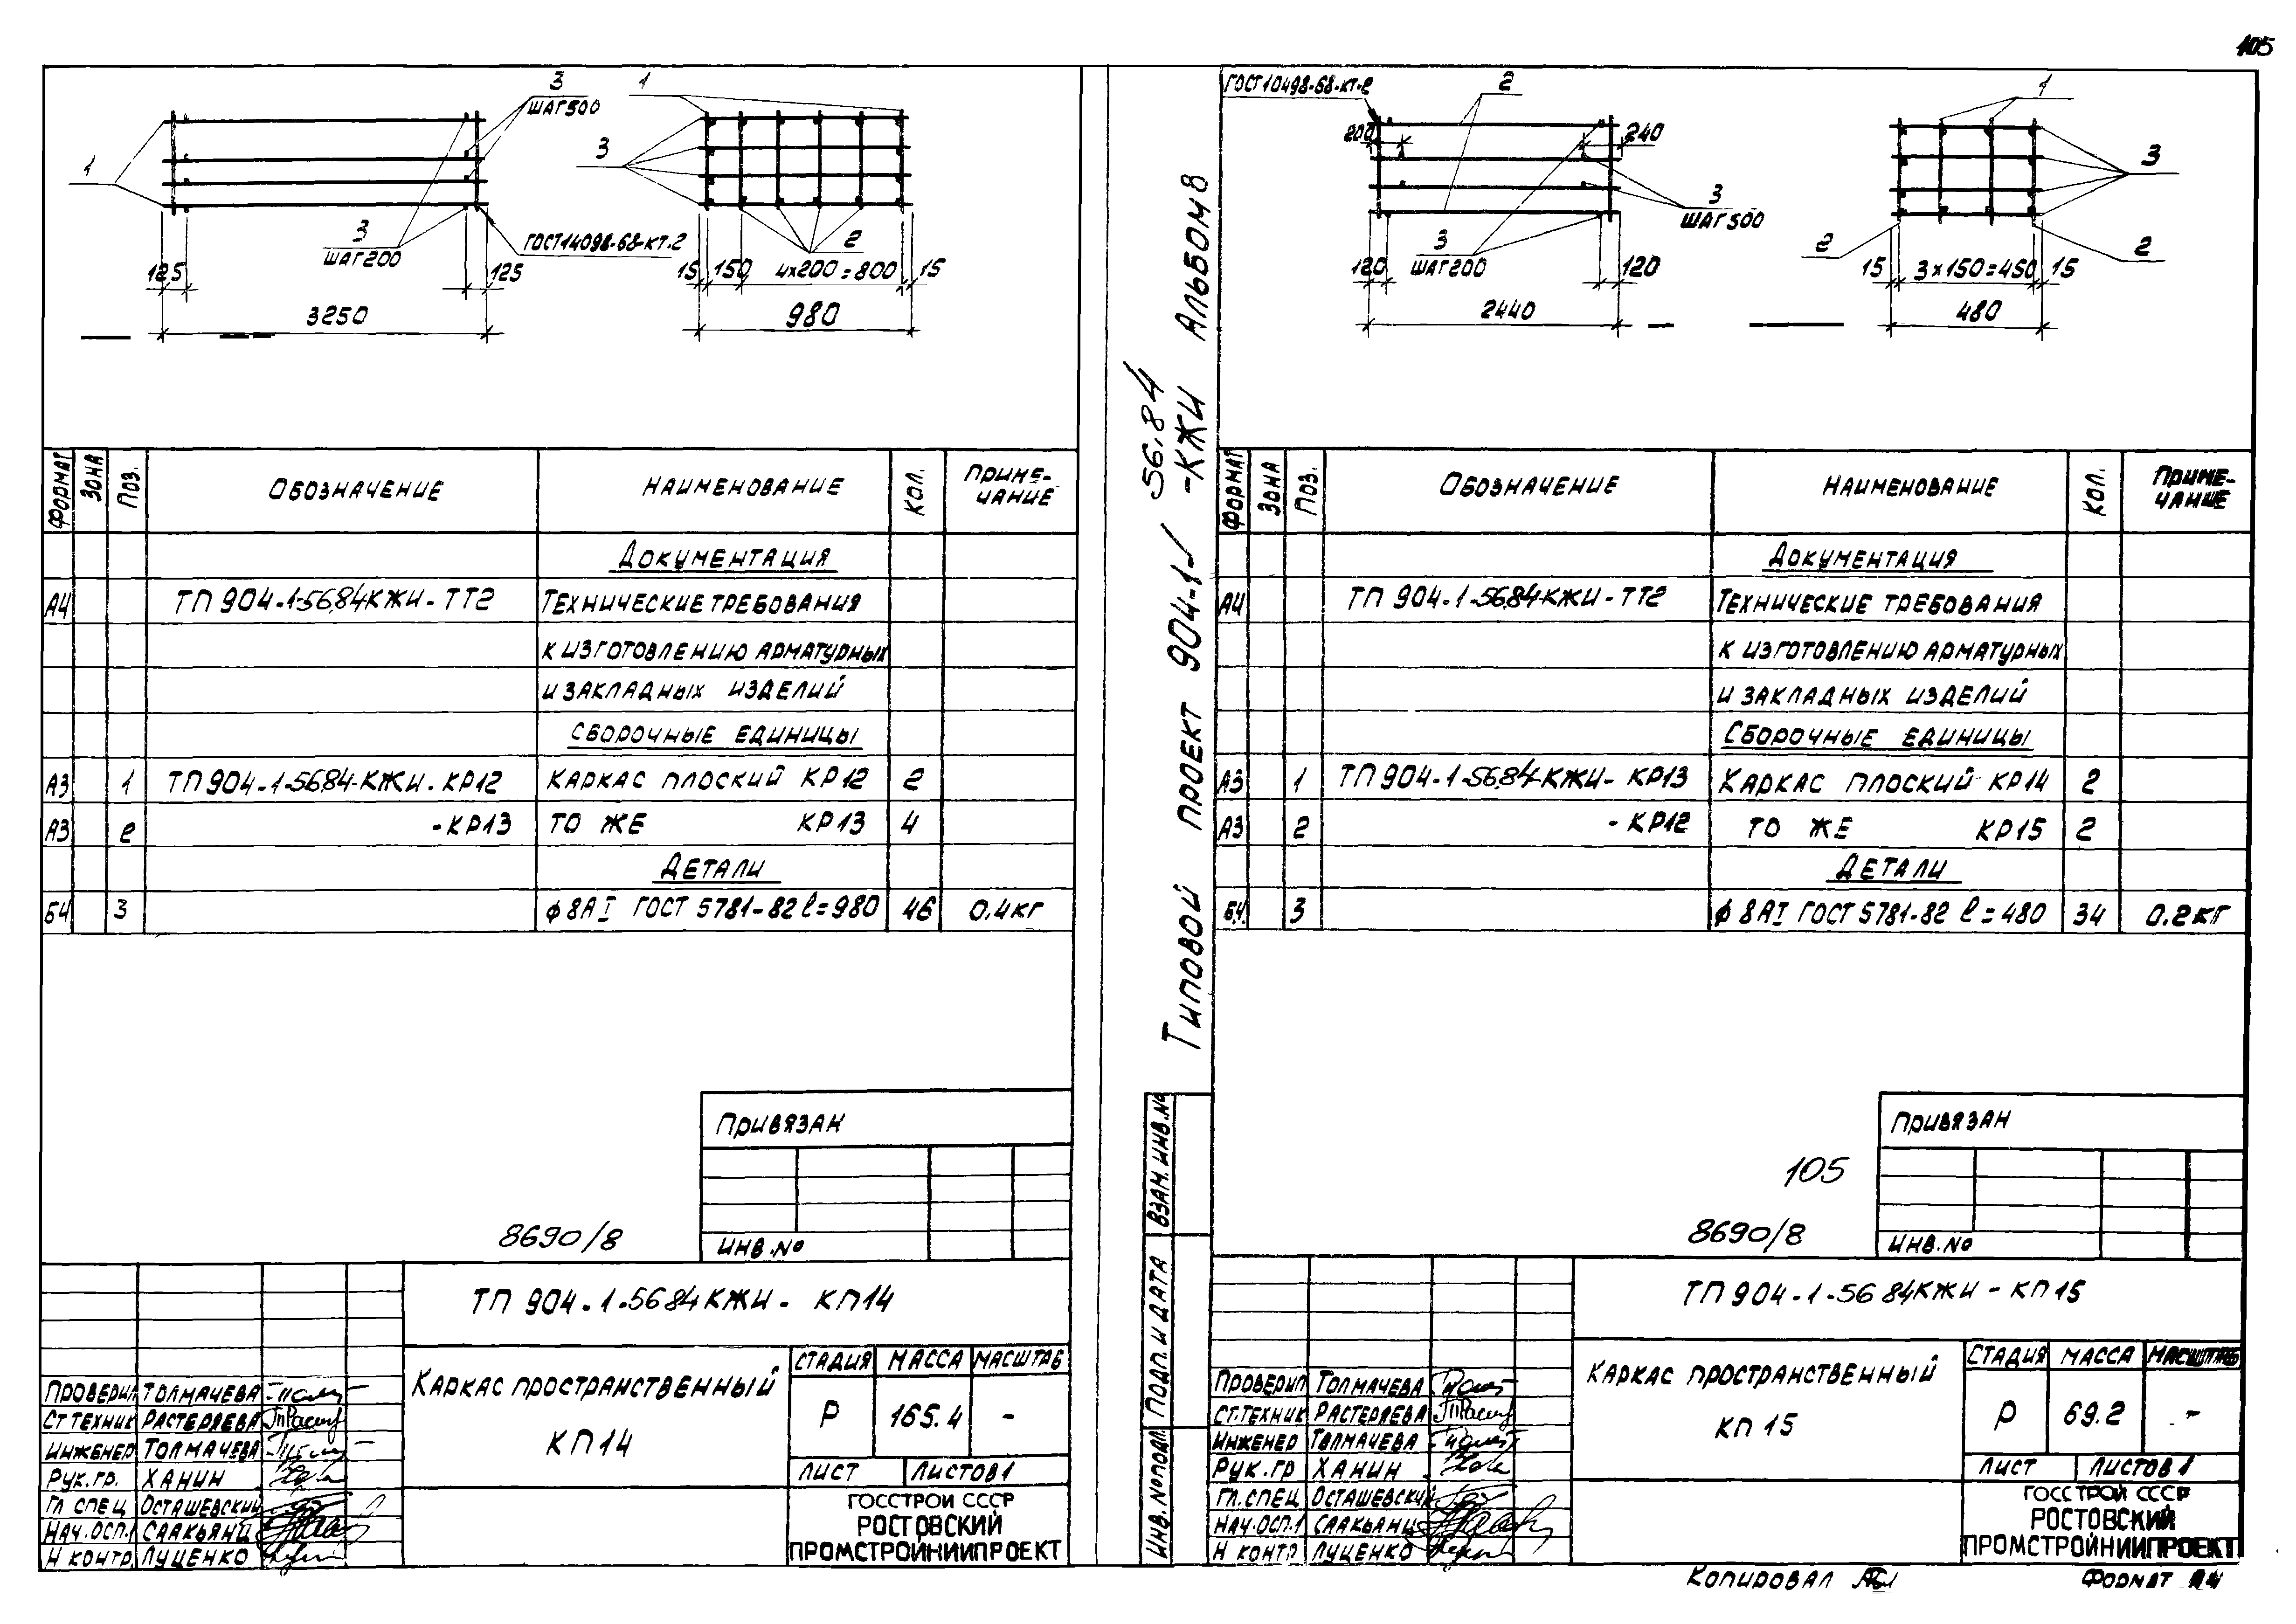 105
3
ШАГ 500
1
1
3
3
ШАГ 200
ГОСТ 14098-68-КТ-2
2
125
125
15
150
4×200=800
15
3250
980
ФОРМАТ
ЗОНА
ПОЗ.
ОБОЗНАЧЕНИЕ
НАИМЕНОВАНИЕ
КОЛ.
ПРИМЕ-
ЧАНИЕ
ДОКУМЕНТАЦИЯ
А4 ТП 904-1-56.84 КЖИ-ТТ2 ТЕХНИЧЕСКИЕ ТРЕБОВАНИЯ
К ИЗГОТОВЛЕНИЮ АРМАТУРНЫХ
И ЗАКЛАДНЫХ ИЗДЕЛИЙ
СБОРОЧНЫЕ ЕДИНИЦЫ
А3 1 ТП 904-1-56.84-КЖИ-КР12 КАРКАС ПЛОСКИЙ КР12 2
А3 2 -КР13 ТО ЖЕ КР13 4
ДЕТАЛИ
БЧ 3 ф 8АI ГОСТ 5781-82 ℓ=980 46 0.4кг
ПРИВЯЗАН
ИНВ.№
8690/8
ТП 904-1-56 84 КЖИ- КП14
КАРКАС ПРОСТРАНСТВЕННЫЙ
КП14
СТАДИЯ МАССА МАСШТАБ
Р 165.4 -
ЛИСТ ЛИСТОВ 1
ПРОВЕРИЛ ТОЛМАЧЕВА
СТ ТЕХНИК РАСТЕРЯЕВА
ИНЖЕНЕР ТОЛМАЧЕВА
РУК.ГР. ХАНИН
ГЛ СПЕЦ ОСТАШЕВСКИЙ
НАЧ.ОСП.1 СААКЬЯНЦ
Н КОНТР ЛУЦЕНКО
ГОССТРОЙ СССР
РОСТОВСКИЙ
ПРОМСТРОЙНИИПРОЕКТ
ТИПОВОЙ ПРОЕКТ 904-1- 56.84 -КЖИ АЛЬБОМ 8
ВЗАМ. ИНВ.№
ПОДП. И ДАТА
ИНВ.№ ПОДЛ.
ГОСТ 10498-68-КТ-2
2
1
200
240
3
ШАГ 500
3
ШАГ 200
3
2
2
120
120
15
3×150=450
15
2440
480
ФОРМАТ
ЗОНА
ПОЗ.
ОБОЗНАЧЕНИЕ
НАИМЕНОВАНИЕ
КОЛ.
ПРИМЕ-
ЧАНИЕ
ДОКУМЕНТАЦИЯ
А4 ТП 904-1-56.84-КЖИ-ТТ2 ТЕХНИЧЕСКИЕ ТРЕБОВАНИЯ
К ИЗГОТОВЛЕНИЮ АРМАТУРНЫХ
И ЗАКЛАДНЫХ ИЗДЕЛИЙ
СБОРОЧНЫЕ ЕДИНИЦЫ
А3 1 ТП 904-1-56.84-КЖИ- КР13 КАРКАС ПЛОСКИЙ КР14 2
А3 2 -КР12 ТО ЖЕ КР15 2
ДЕТАЛИ
БЧ. 3 ф 8АI ГОСТ 5781-82 ℓ=480 34 0.2кг
ПРИВЯЗАН
ИНВ.№
105
8690/8
ТП 904-1-56 84 КЖИ-КП15
КАРКАС ПРОСТРАНСТВЕННЫЙ
КП 15
СТАДИЯ МАССА МАСШТАБ
Р 69.2 -
ЛИСТ ЛИСТОВ 1
ПРОВЕРИЛ ТОЛМАЧЕВА
СТ.ТЕХНИК РАСТЕРЯЕВА
ИНЖЕНЕР ТОЛМАЧЕВА
РУК.ГР ХАНИН
ГЛ.СПЕЦ ОСТАШЕВСКИЙ
НАЧ.ОСП.1 СААКЬЯНЦ
Н КОНТР ЛУЦЕНКО
ГОССТРОЙ СССР
РОСТОВСКИЙ
ПРОМСТРОЙНИИПРОЕКТ
КОПИРОВАЛ
ФОРМАТ А4